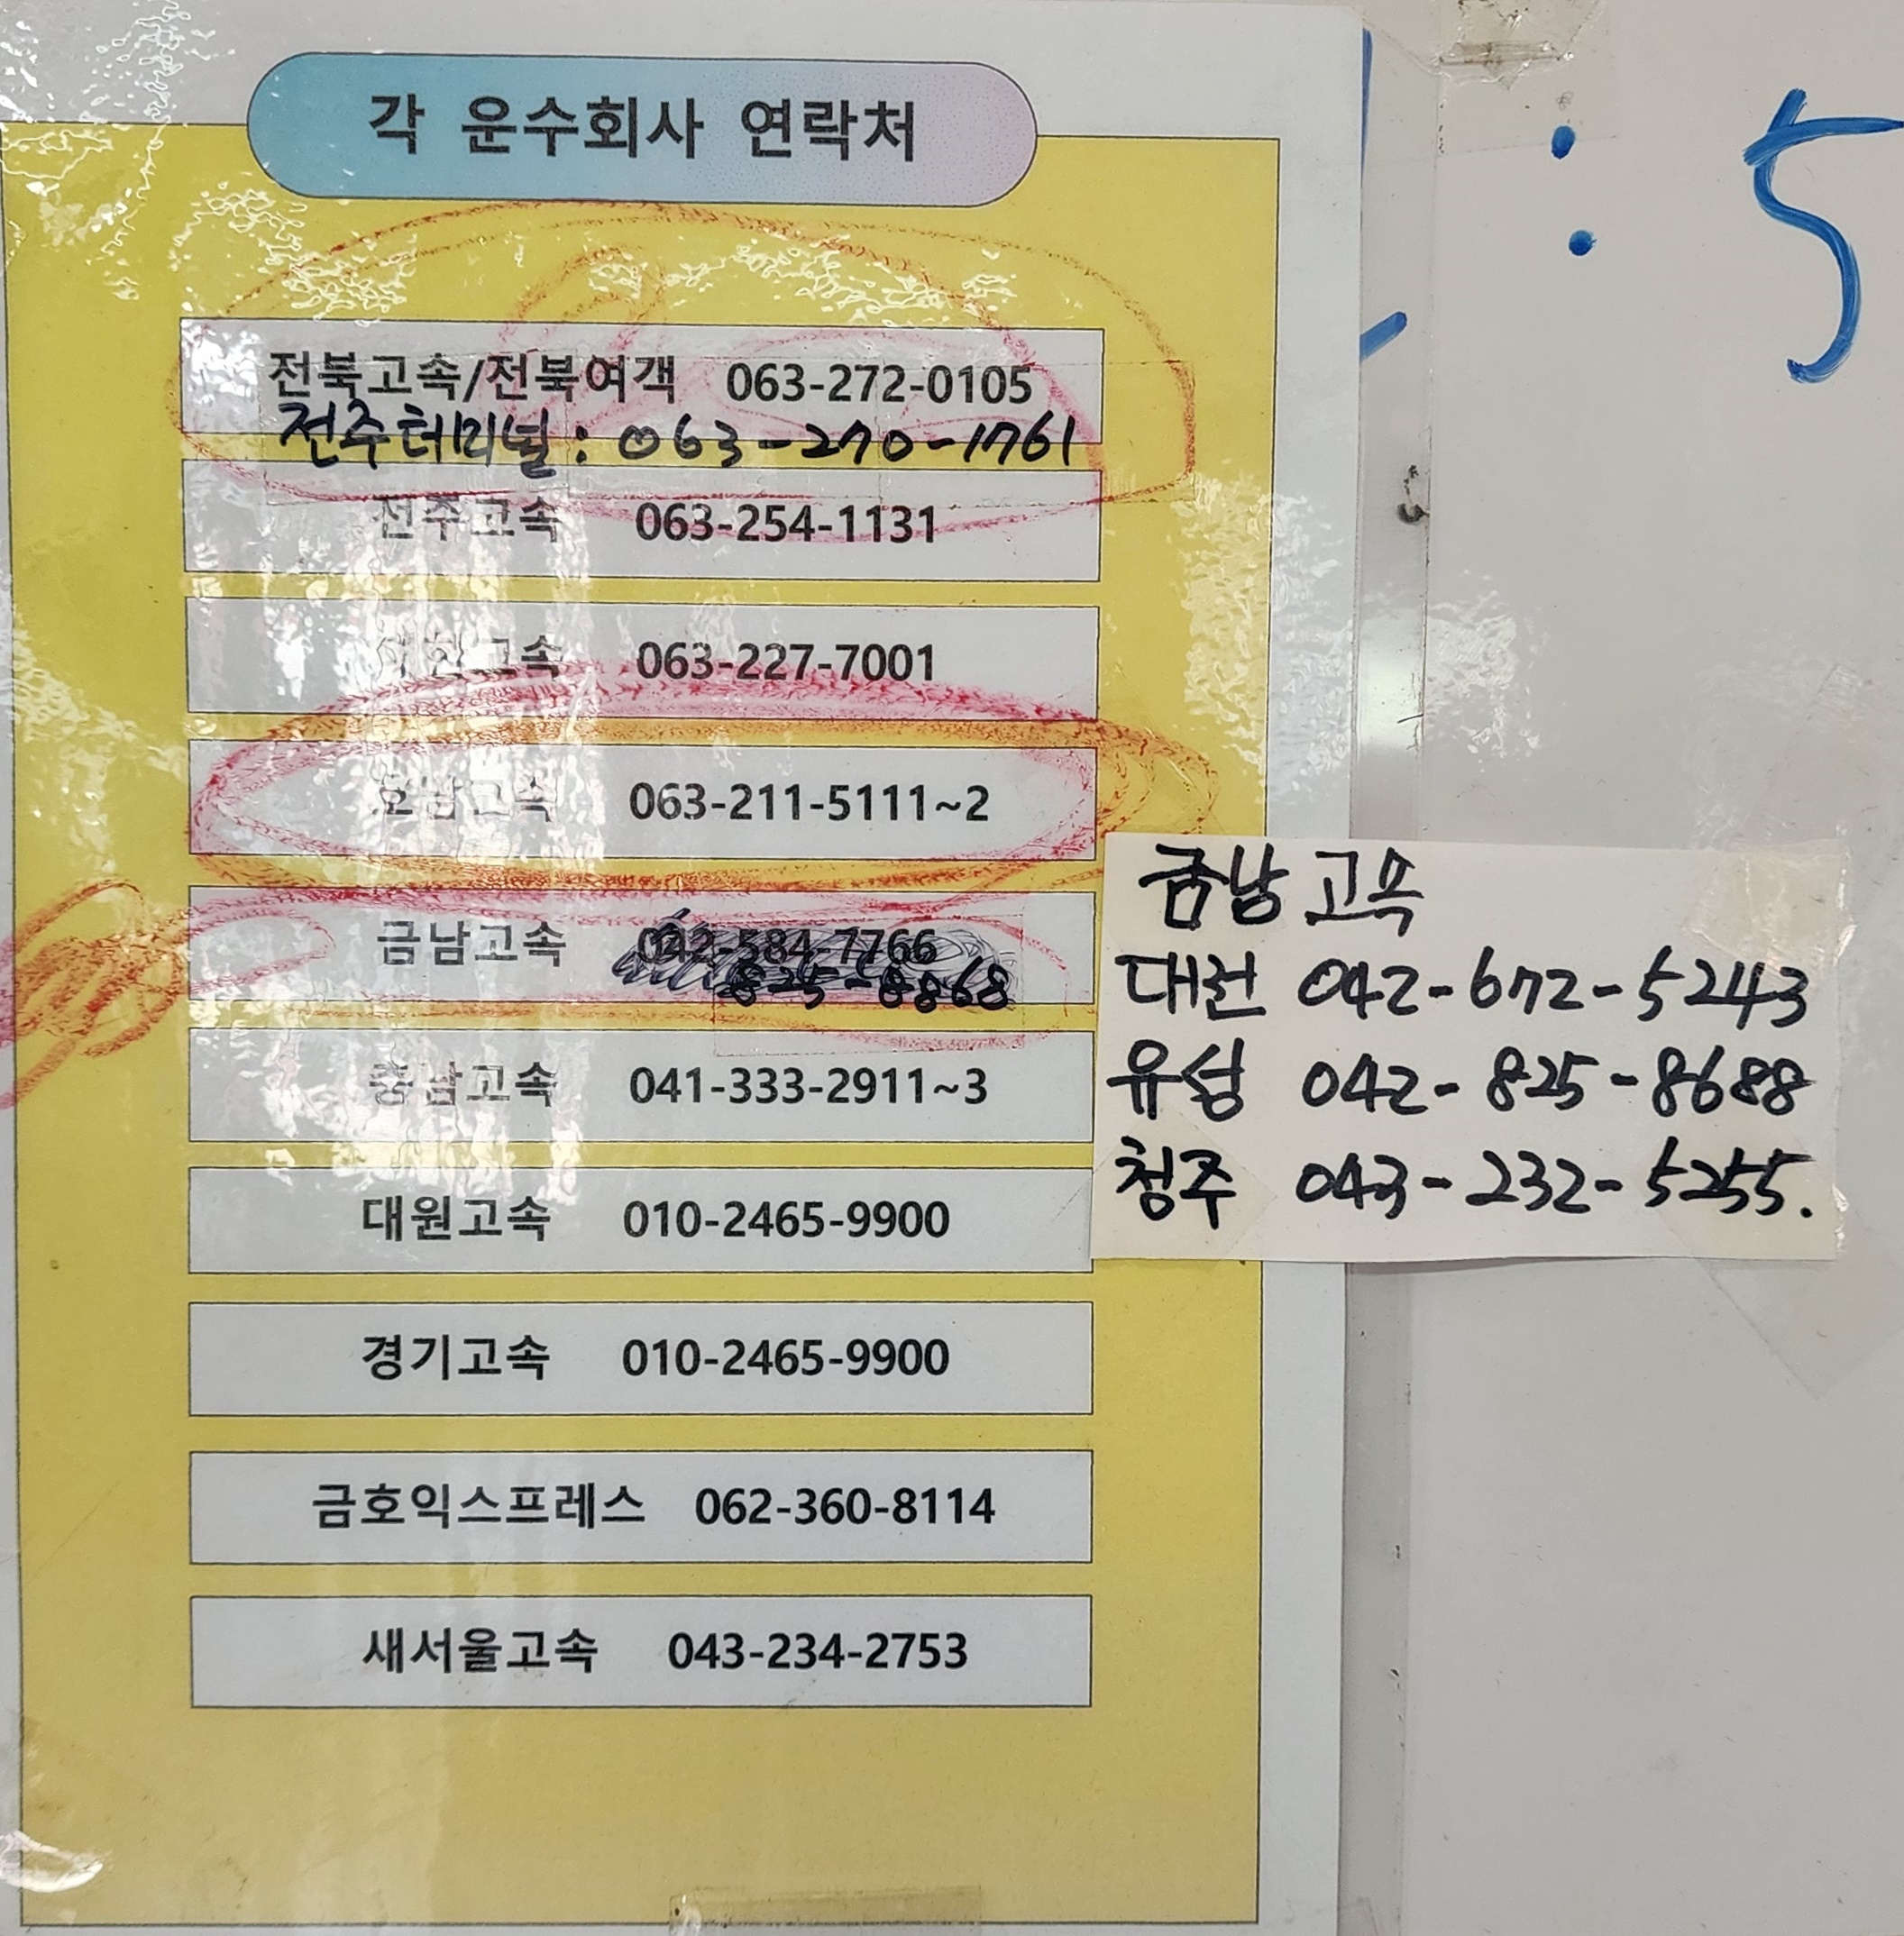 각 운수회사 연락처
전북고속/전북여객 063-272-0105
전주터미널 : 063-270-1761
전주고속 063-254-1131
고속 063-227-7001
호남고속 063-211-5111~2
금남고속 042-584-7766
825-8868
충남고속 041-333-2911~3
대원고속 010-2465-9900
경기고속 010-2465-9900
금호익스프레스 062-360-8114
새서울고속 043-234-2753
금남고속
대전 042-672-5243
유성 042-825-8688
청주 043-232-5255.
: 5